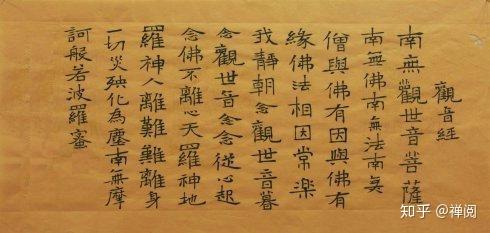 觀音經
南無觀世音菩薩
南無佛南無法南無
僧與佛有因與佛有
緣佛法相因常楽
我靜朝念觀世音暮
念觀世音念念從心起
念佛不離心天羅神地
羅神人離難難離身
一切災殃化為塵南無摩
訶般若波羅蜜
知乎 @禅阅